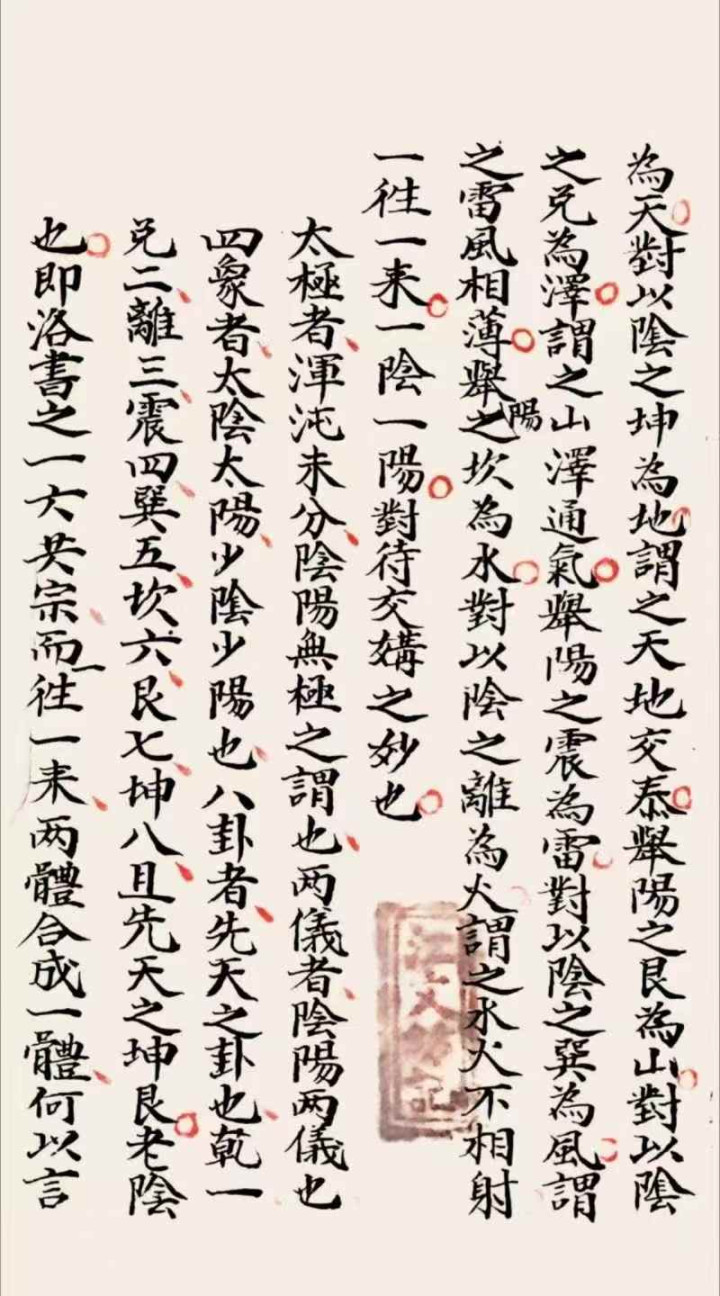 為天對以陰之坤為地謂之天地交泰舉陽之艮為山對以陰
之兌為澤謂之山澤通氣舉陽之震為雷對以陰之巽為風謂
之雷風相薄舉陽之坎為水對以陰之離為火謂之水火不相射
一徃一来一陰一陽對待交媾之妙也
太極者渾沌未分陰陽無極之謂也两儀者陰陽两儀也
四象者太陰太陽少陰少陽也八卦者先天之卦也乾一
兌二離三震四巽五坎六艮七坤八且先天之坤艮老陰
也即洛書之一六共宗而一徃一来两體合成一體何以言